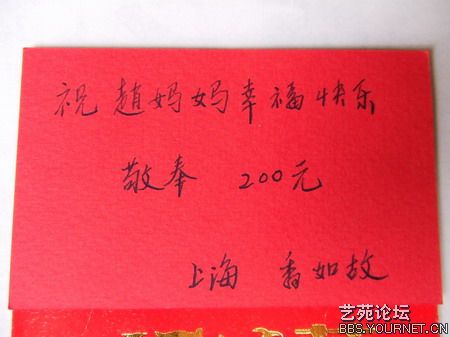 祝赵妈妈幸福快乐
敬奉 200元
上海 香如故
艺苑论坛
BBS.YOURNET.CN